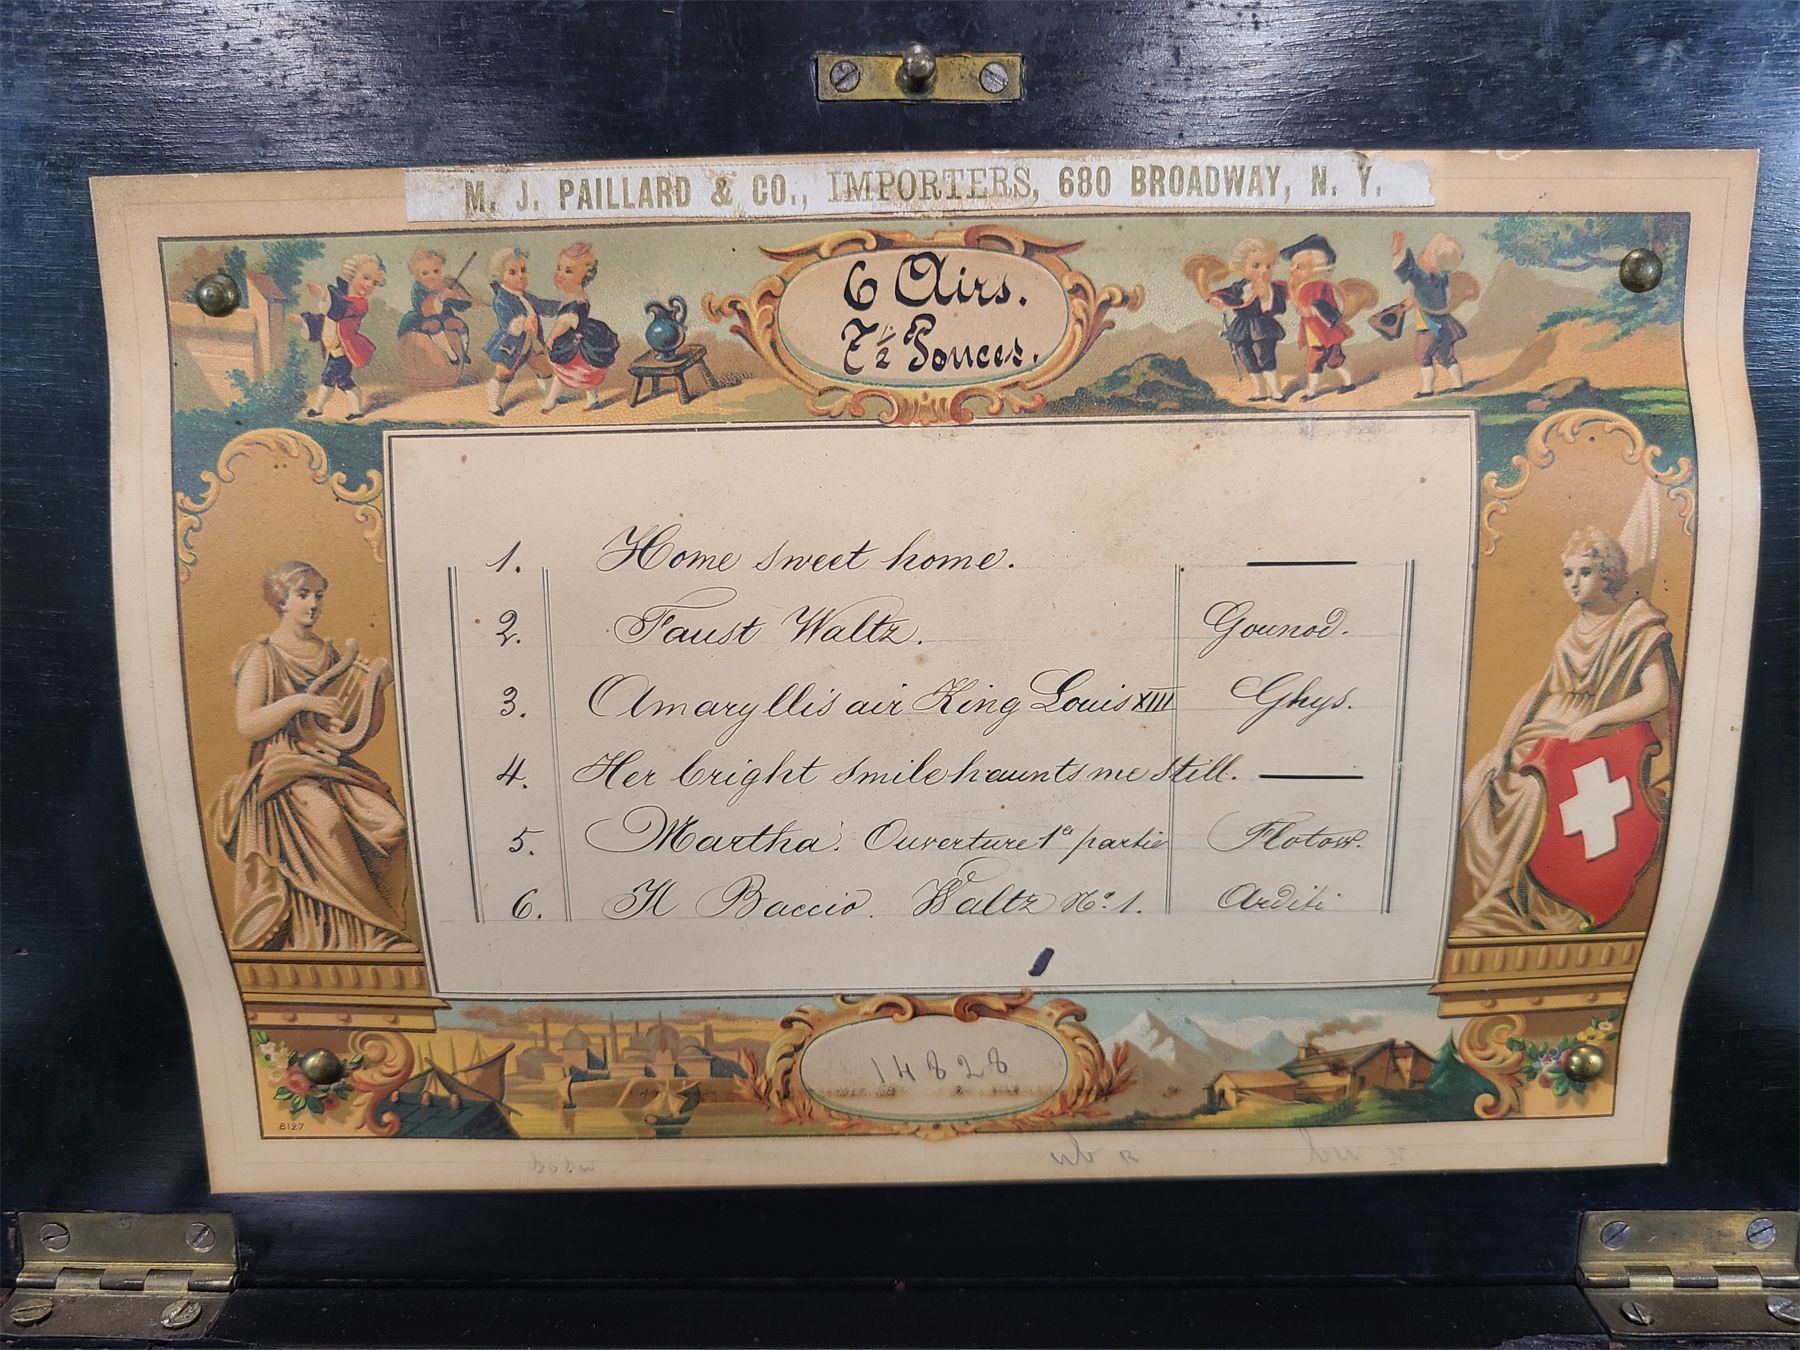 M. J. PAILLARD & CO., IMPORTERS, 680 BROADWAY, N. Y.
6 Airs.
7½ Pouces.
1. Home sweet home. —
2. Faust Waltz. Gounod.
3. Amaryllis air King Louis XIII Ghys.
4. Her bright smile haunts me still. —
5. Martha. Ouverture 1ª partie Flotow.
6. Il Baccio. Waltz Nº 1. Arditi
14828
8127